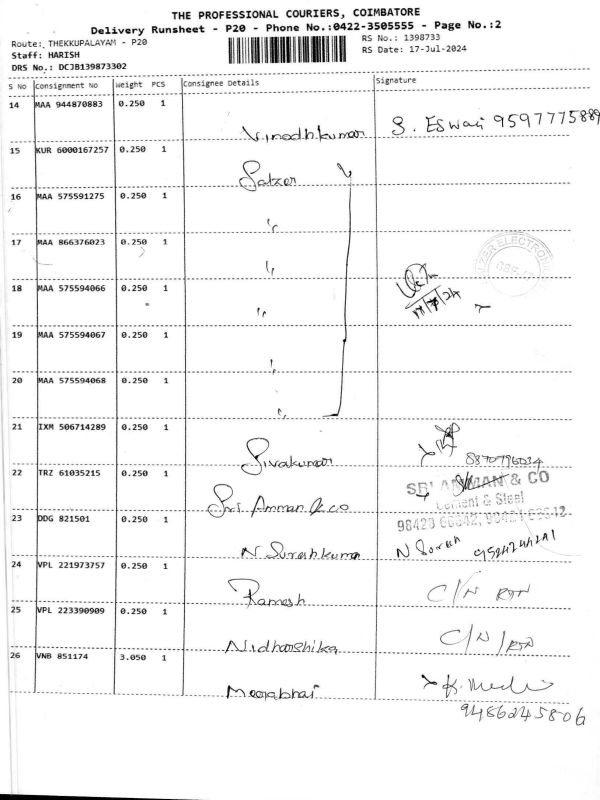 THE PROFESSIONAL COURIERS, COIMBATORE
Delivery Runsheet - P20 - Phone No.:0422-3505555 - Page No.:2
Route: THEKKUPALAYAM - P20
RS No.: 1398733
Staff: HARISH
RS Date: 17-Jul-2024
DRS No.: DCJB139873302
S No Consignment No Weight PCS Consignee Details Signature
14 MAA 944870883 0.250 1
Vinodhkumar S. Eswari 9597775889
15 KUR 6000167257 0.250 1
Salzer
16 MAA 575591275 0.250 1
"
17 MAA 866376023 0.250 1
"
18 MAA 575594066 0.250 1
"
17/7/24
19 MAA 575594067 0.250 1
"
20 MAA 575594068 0.250 1
"
21 IXM 506714289 0.250 1
Sivakumar 8870796034
22 TRZ 61035215 0.250 1
Sri Amman & co
SRI AMMAN & CO
Cement & Steel
23 DDG 821501 0.250 1
N Sureshkumar N Suresh
24 VPL 221973757 0.250 1
Ramesh C/N RTN
25 VPL 223390909 0.250 1
Nidharshika C/N/RTN
26 VNB 851174 3.050 1
Meqabhai
9486245806